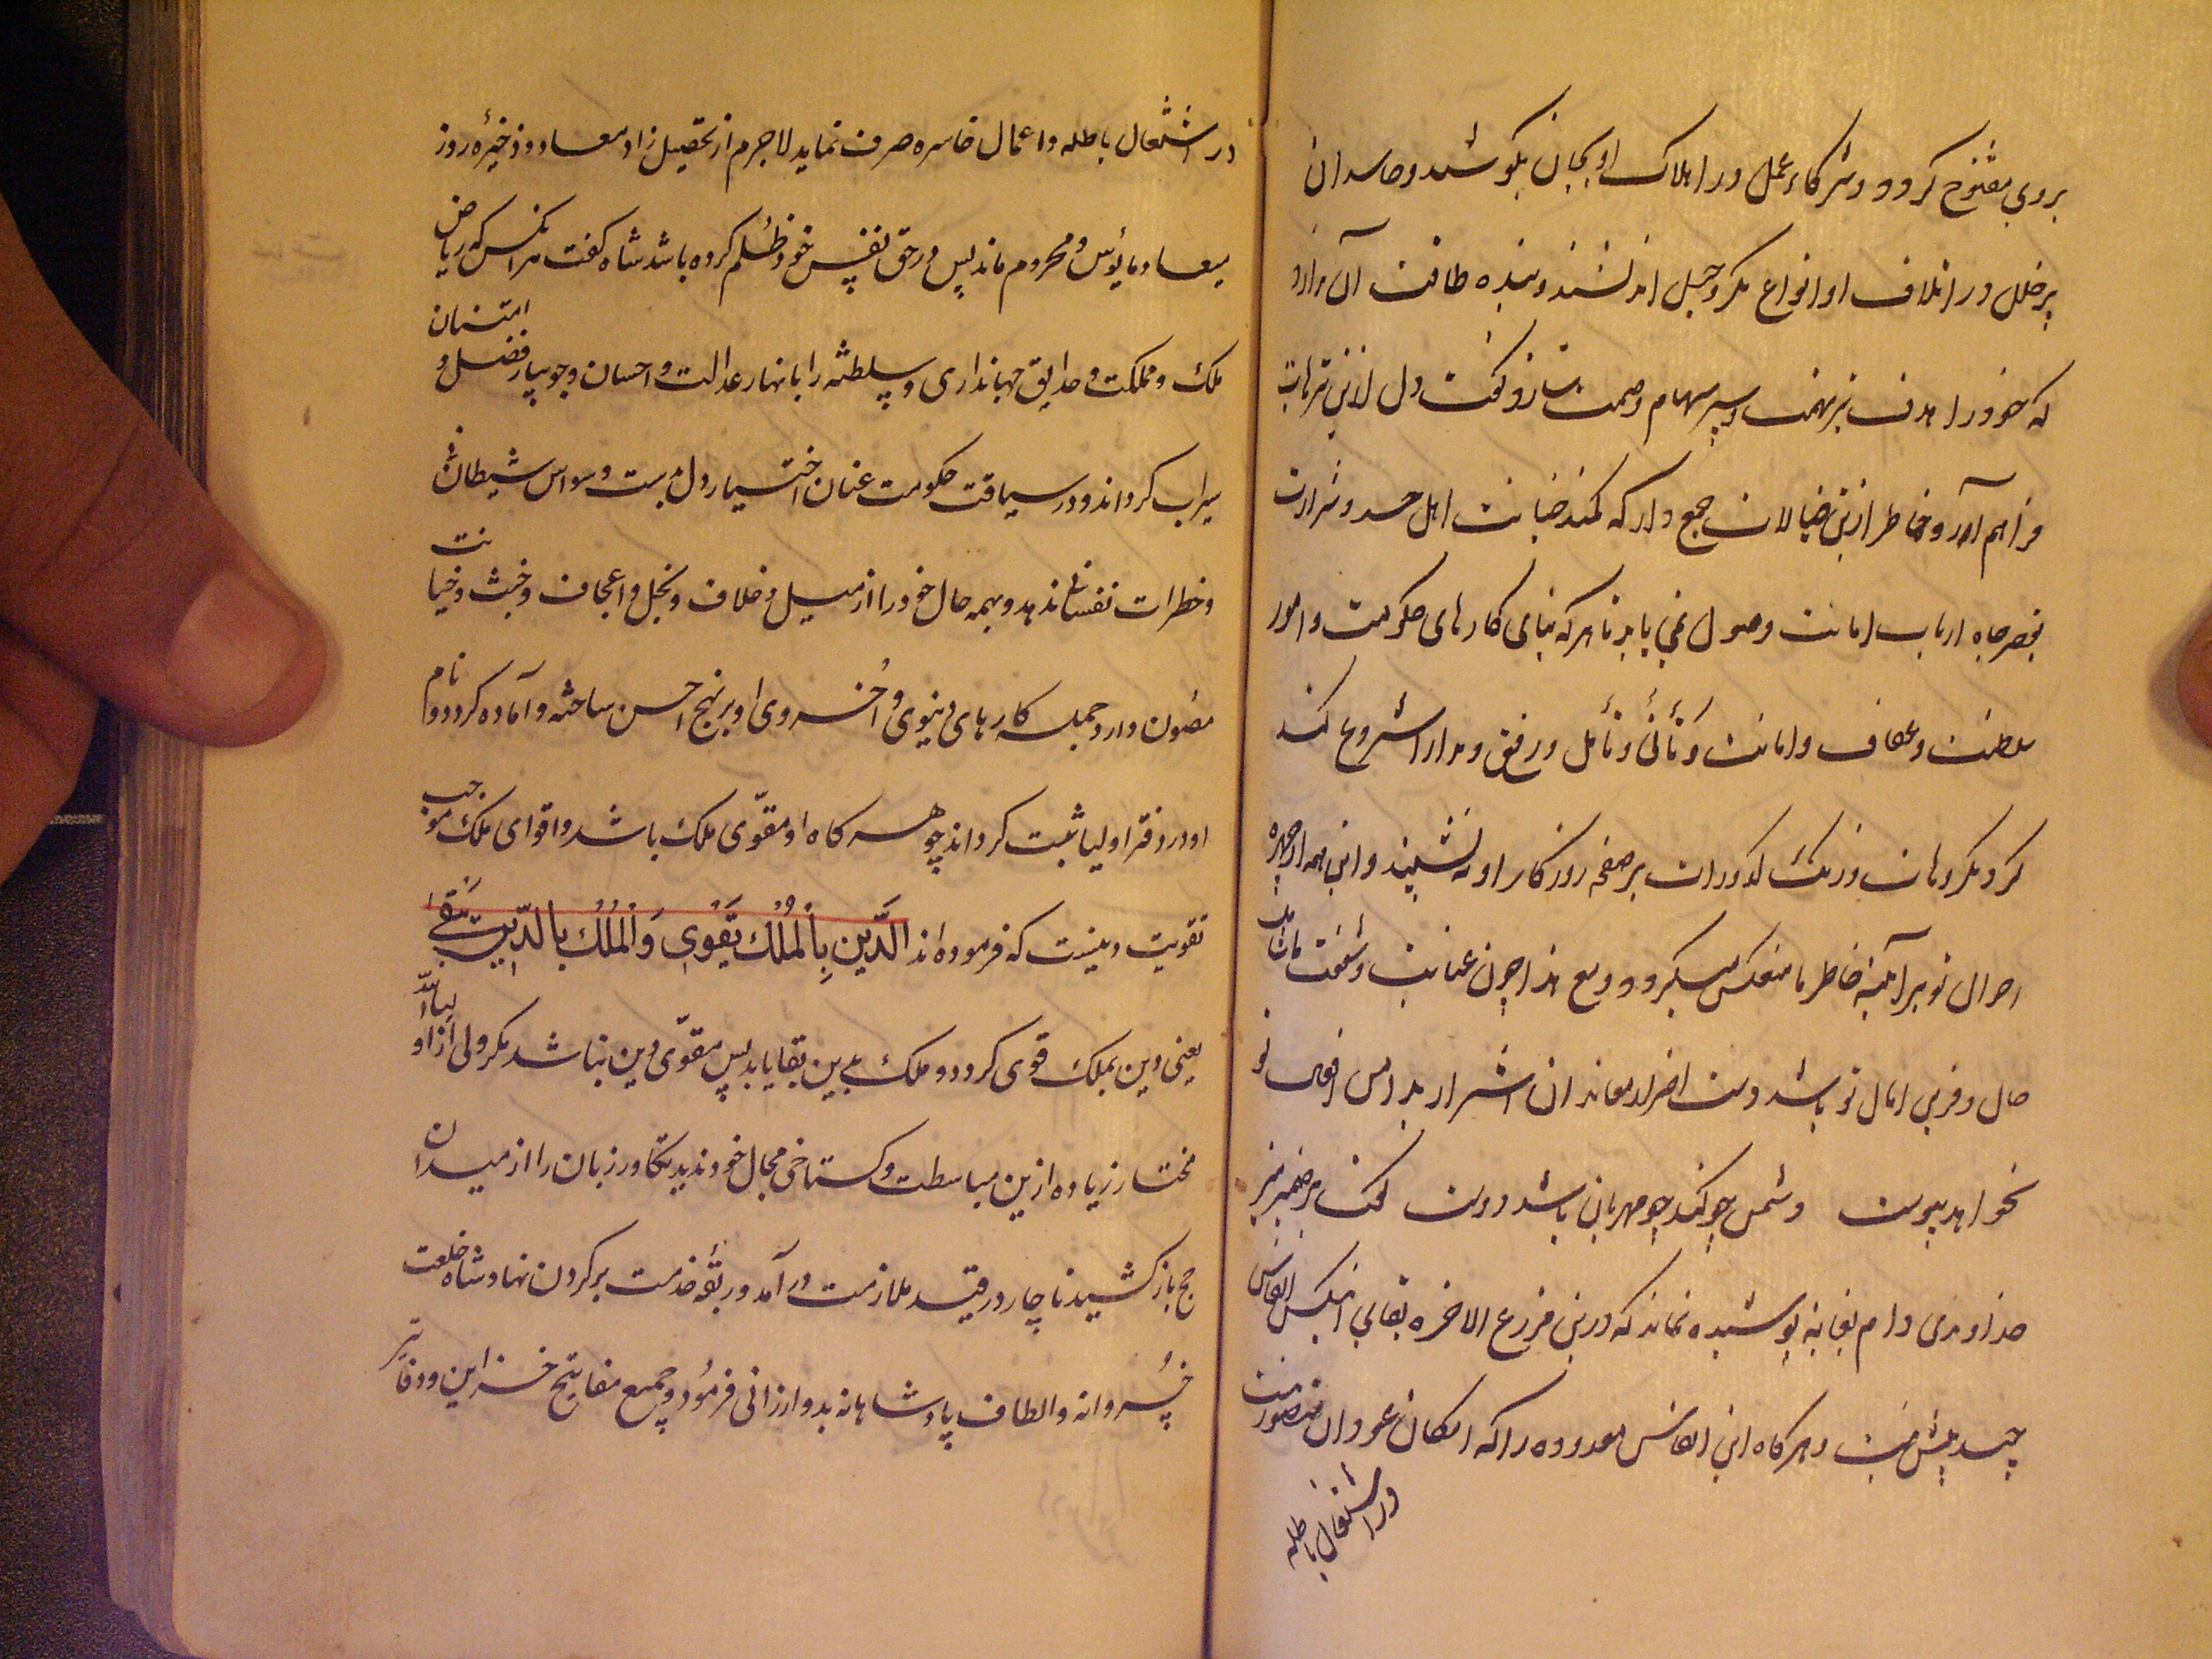 بروی مفتوح کردد و شرکاء عمل در اهلاک او بجان بکوشند و حاسدان
پرخلل در اتلاف او انواع مکر و حیل اندیشند و بنده طاقت آن ندارد
که خود را هدف تیر تهمت و سپر سهام وصمت سازد کفت دل ازین ترهات
فراهم آر و خاطر ازین خیالات جمع دار که کمند خیانت اهل حسد و شرارت
بقصر جاه ارباب امانت وصول نمی یابد تا هر که بنای کارهای حکومت و امور
سلطنت و عفاف و امانت و تأنی و تأمل و رفق و مدارا شروع کند
کرد مکروهات و زنک کدورات بر صفحه روزکار او ننشیند و این همه از چهره
احوال تو بر آئینه خاطر ما منعکس میکردد و مع هذا چون عنایت و شفقت ما شامل
حال و قرین امال تو باشد دست اضرار معاندان اشرار بدامن اقبال تو
نخواهد پیوست دشمن چه کند چو مهربان باشد دوست کفت بر ضمیر منیر
خداوندی دام بقائه پوشیده نماند که درین مزرع الاخره بقای انیکس انفاس
چند بیش نیست و هرکاه این انفاس معدوده را که امکان عود آن متصور نیست
در اشتغال باطله
در اشتغال باطله و اعمال خاسره صرف نماید لاجرم از تحصیل زاد معاد و ذخیره روز
میعاد مائوس و محروم ماند پس در حق نفس خود ظلم کرده باشد شاه کفت هر انکس که ریاض
ملک و مملکت و حدایق جهانداری و سلطنه را بانهار عدالت و احسان و جویبار فضل و امتنان
سیراب کرداند و در سیاقت حکومت عنان اختیار دل بدست وسواس شیطانی
و خطرات نفسانی ندهد و بهمه حال خود را از میل و خلاف و بخل و اعجاف و خبث و خیانت
مصون دارد جمله کارهای دنیوی و اُخروی او بر نهج احسن ساخته و آماده کردد و نام
او در دفتر اولیا ثبت کرداند چو هر کاه او مقوّی ملک باشد و اقوای ملک موجب
تقویت دینست که فرموده اند الَّدین بِالمُلک یَقَوی وَالمُلُک بِالدّینِ یَبقی
یعنی دین بملک قوی کردد و ملک بدین بقا یابد پس مقوّی دین نباشد مکر ولی از اولیاالله
مختار زیاده ازین مباسطت و کستاخی مجال خود ندید تکاور زبان را از میدان
حج باز کشید ناچار در قید ملازمت در آمد و ربقه خدمت بر کردن نهاد شاه خلعت
خسروانه و الطاف پادشاهانه بدو ارزانی فرمود و جمیع مفاتیح خزاین و دفاتر